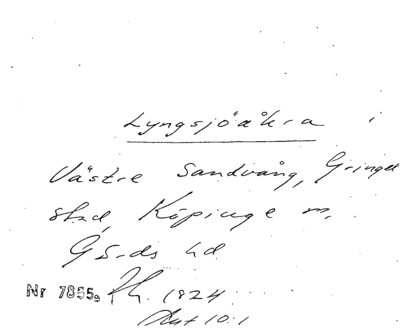 Lyngsjöåkra i
Västre Sandvång, Gringel
stad, Köpinge sn,
Gärds hd
Nr 7855a Rh. 1824
Akt 10:1